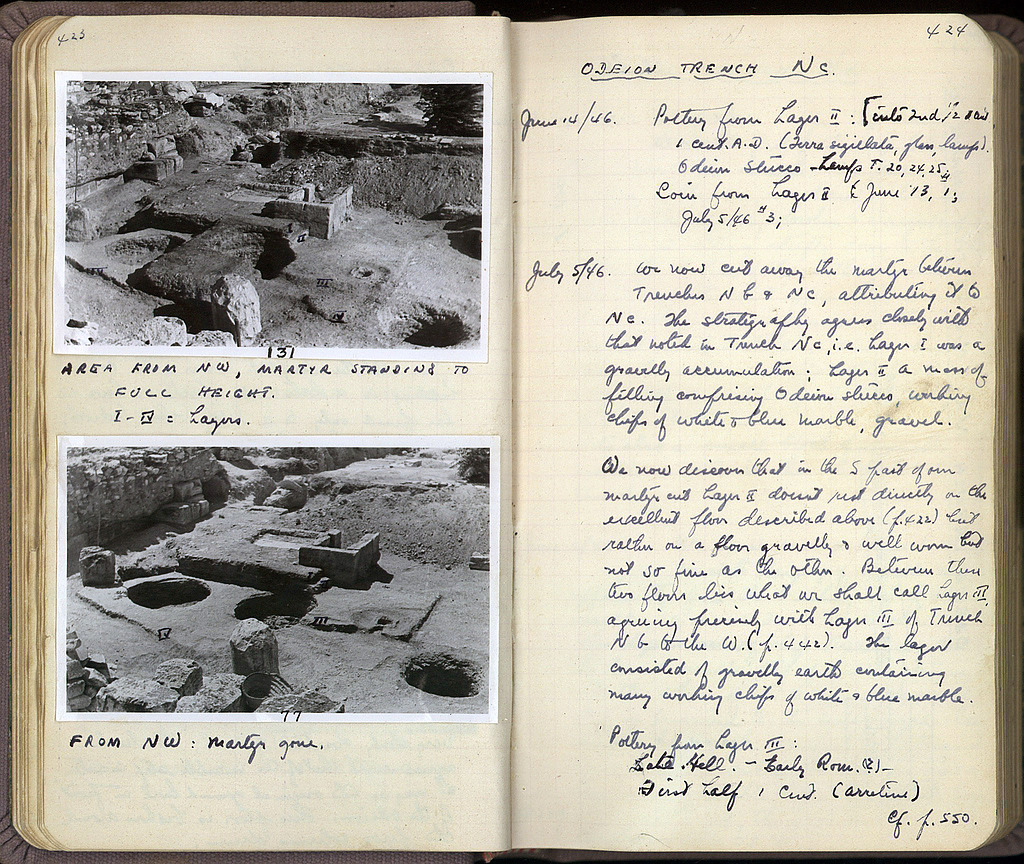 423
131
AREA FROM NW, MARTYR STANDING TO
FULL HEIGHT.
I-IV = Layers.
77
FROM NW: Martyr gone.
424
ODEION TRENCH Nc.
June 14/46. Pottery from Layer II: into 2nd 1/2
1 cent. A.D. (Terra sigillata, glass, lamps).
Odeion stucco Lamps T. 20, 24, 25
Coin from Layer II June 13, 1;
July 5/46 # 3;
July 5/46. We now cut away the martyr between
Trenches Nb & Nc, attributing it to
Nc. The stratigraphy agrees closely with
that noted in Trench Nc, i.e. Layer I was a
gravelly accumulation; Layer II a mass of
filling comprising Odeion stucco, working
chips of white & blue marble, gravel.
We now discover that in the S part of our
martyr cut Layer II doesn't rest directly on the
excellent floor described above (p. 422) but
rather on a floor gravelly & well worn but
not so fine as the other. Between these
two floors lies what we shall call Layer III,
agreeing precisely with Layer III of Trench
Nb to the W. (p. 442). The layer
consisted of gravelly earth containing
many working chips of white & blue marble.
Pottery from Layer III:
Late Hell. - Early Rom. (?) -
First half 1 Cent. (Arretine)
Cf. p. 550.